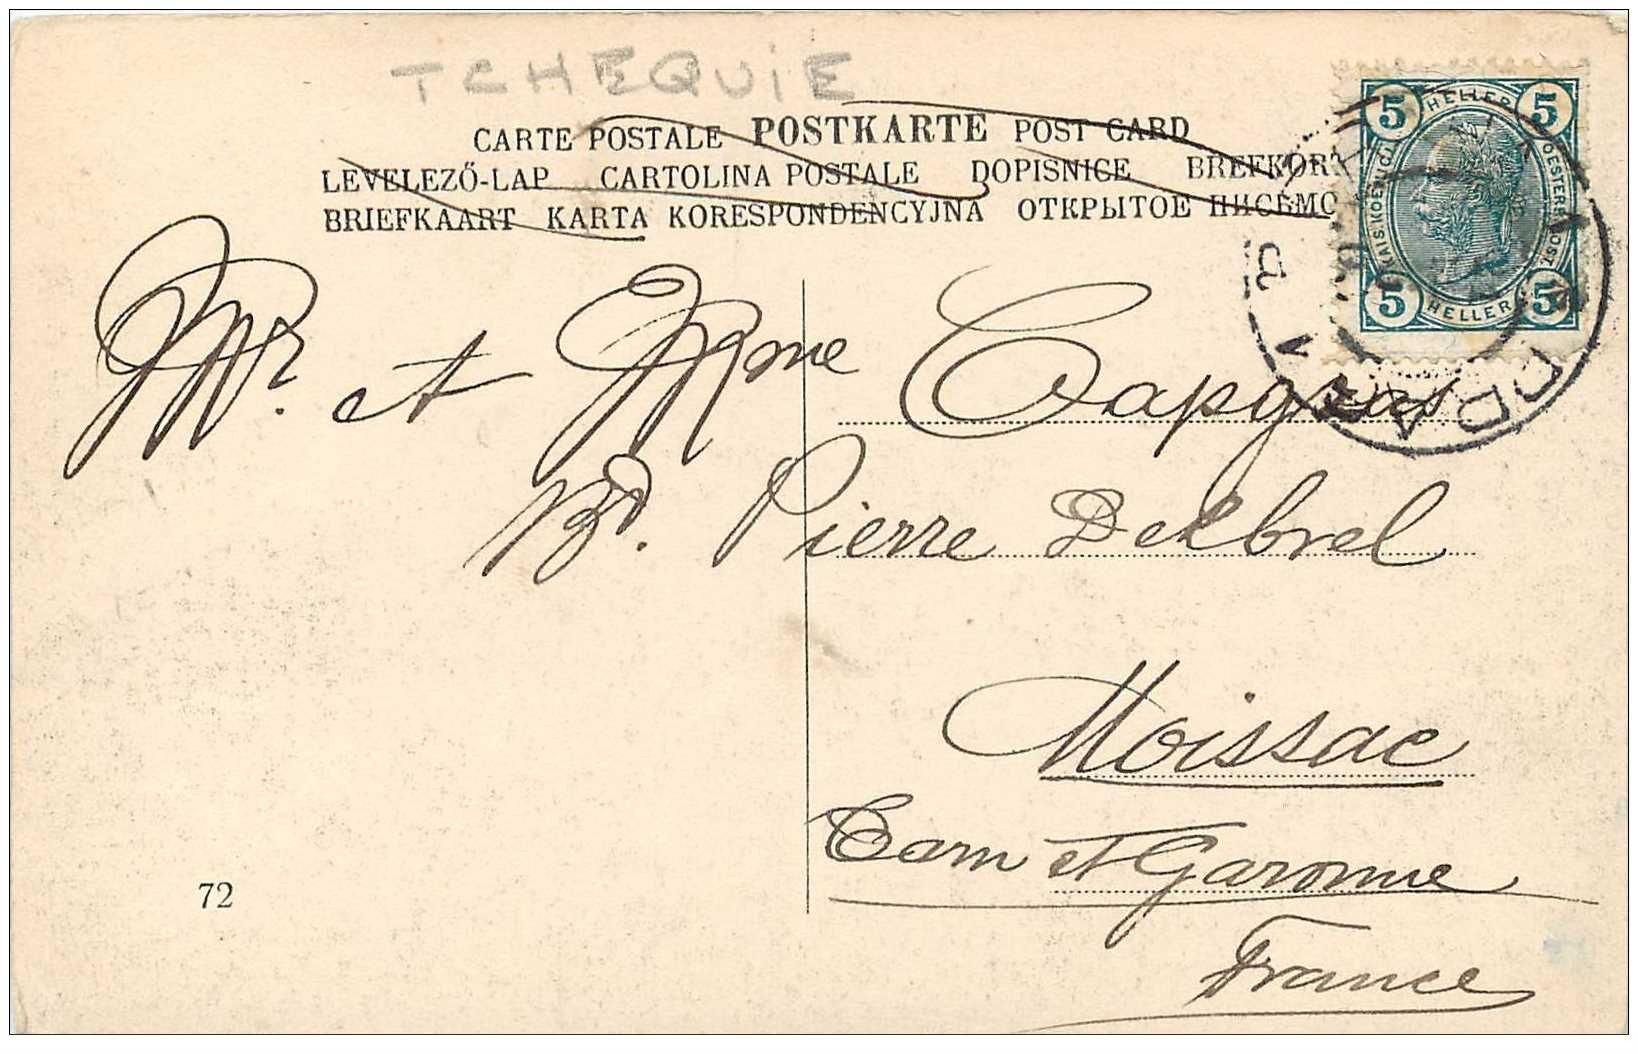 TCHEQUIE
CARTE POSTALE POSTKARTE POST CARD
LEVELEZŐ-LAP CARTOLINA POSTALE DOPISNICE BREFKORT
BRIEFKAART KARTA KORESPONDENCYJNA ОТКРЫТОЕ ПИСЬМО
5 HELLER 5
5 HELLER 5
Mr. et Mme Capgras
Bd. Pierre Delbrel
Moissac
Tarn et Garonne
France
72